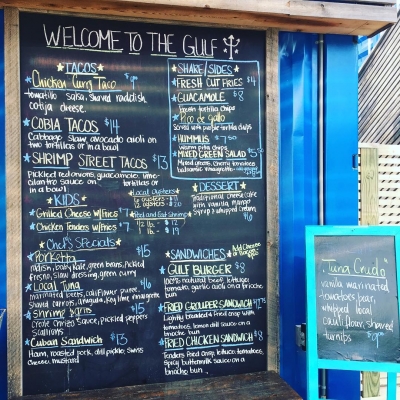 WELCOME TO THE GULF
TACOS
Chicken Curry Taco
tomatillo salsa, shaved raddish,
cotija cheese
COBIA TACOS $14
Cabbage slaw, avocado aioli on
two tortillas or in a bowl
SHRIMP STREET TACOS $13
Pickled red onions, guacamole, lime-
cilantro sauce on tortillas or
in a bowl
KIDS
Grilled Cheese w/Fries
Chicken Tenders w/Fries
Chef's Specials
Porketta $15
baby kale, green beans, Pickled
Fresno, slaw dressing, green curry
Local Tuna
marinated beets, cauliflower puree,
shaved carrots, Key lime vinaigrette
shrimp $15
Sauce, pickled peppers
Scallions
Cuban Sandwich $13
Ham, roasted pork, dill pickle, swiss
cheese, mustard
SHARE/SIDES
FRESH CUT FRIES $4
GUACAMOLE $8
tortilla chips
Pico de gallo
Served with purple tortilla chips
HUMMUS $7.50
warm pita chips
MIXED GREEN SALAD $5
Mixed greens, cherry tomatoes
balsamic vinaigrette
Local oysters
6 oysters - $11
12 oysters - $20
Peel and Eat Shrimp
1/2 lb. $12
1 lb. $19
DESSERT
Traditional cheesecake
with vanilla, mango
syrup & whipped cream
SANDWICHES
Add Cheese
GULF BURGER $8
100% natural beef, lettuce,
tomato, garlic aioli on a brioche
bun
FRIED GROUPER SANDWICH
Lightly breaded & fried crisp with
tomatoes, lemon dill sauce on a
brioche bun
FRIED CHICKEN SANDWICH $8
Tenders fried crisp, lettuce, tomatoes,
spicy buttermilk sauce on a
brioche bun
Tuna Crudo
vanilla marinated
tomatoes,
whipped local
cauliflower, shaved
turnips